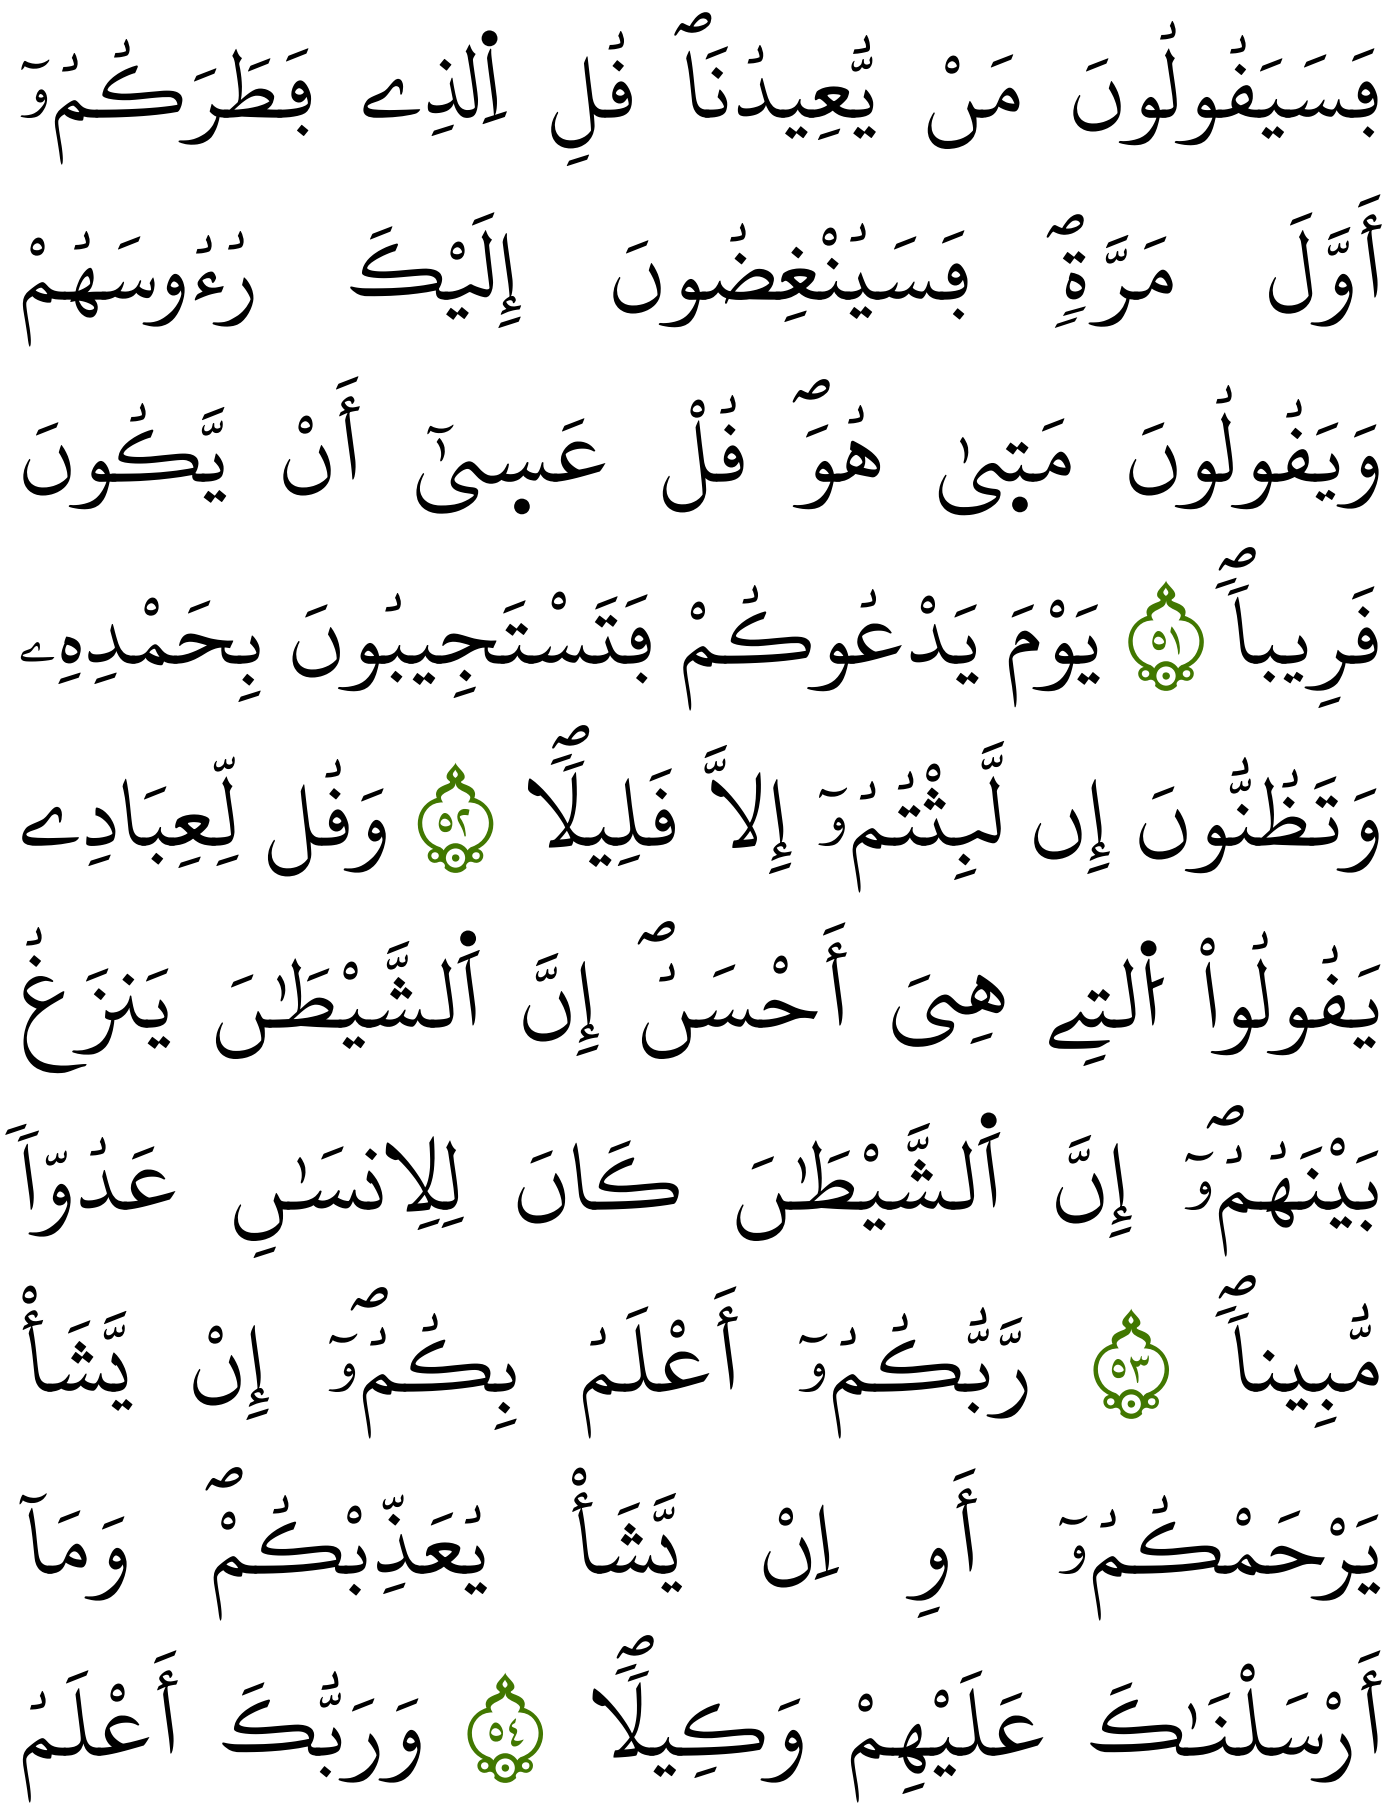 فَسَيَقُولُونَ مَنْ يُّعِيدُنَاۖ قُلِ اِ۬لذِے فَطَرَكُمُۥٓ
أَوَّلَ مَرَّةٖۖ فَسَيُنْغِضُونَ إِلَيْكَ رُءُوسَهُمْ
وَيَقُولُونَ مَت۪يٰ هُوَۖ قُلْ عَس۪يٰٓ أَنْ يَّكُونَ
قَرِيباٗۖ ٥١ يَوْمَ يَدْعُوكُمْ فَتَسْتَجِيبُونَ بِحَمْدِهِۦ
وَتَظُنُّونَ إِن لَّبِثْتُمُۥٓ إِلَّا قَلِيلاٗۖ ٥٢ وَقُل لِّعِبَادِے
يَقُولُواْ اُ۬لتِے هِيَ أَحْسَنُۖ إِنَّ اَ۬لشَّيْطَٰنَ يَنزَغُ
بَيْنَهُمُۥٓۖ إِنَّ اَ۬لشَّيْطَٰنَ كَانَ لِلِانسَٰنِ عَدُوّاٗ
مُّبِيناٗۖ ٥٣ رَّبُّكُمُۥٓ أَعْلَمُ بِكُمُۥٓۖ إِنْ يَّشَأْ
يَرْحَمْكُمُۥٓ أَوِ اِنْ يَّشَأْ يُعَذِّبْكُمْۖ وَمَآ
أَرْسَلْنَٰكَ عَلَيْهِمْ وَكِيلاٗۖ ٥٤ وَرَبُّكَ أَعْلَمُ